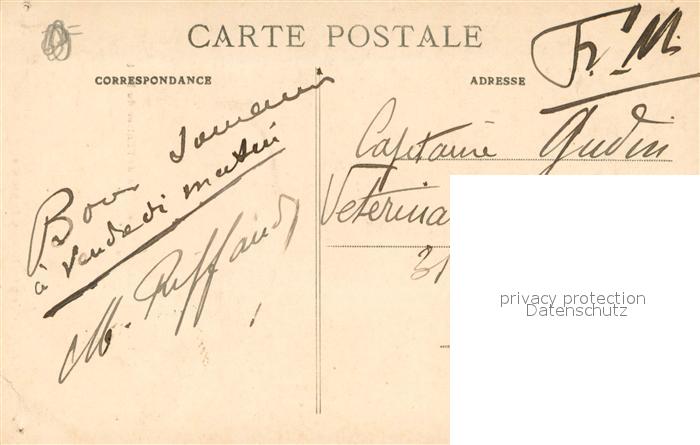 CARTE POSTALE
CORRESPONDANCE
ADRESSE
Fr. M.
Bon
à Vendredi matin
M. Riffaud
Capitaine Gudin
Veterina
31
privacy protection
Datenschutz